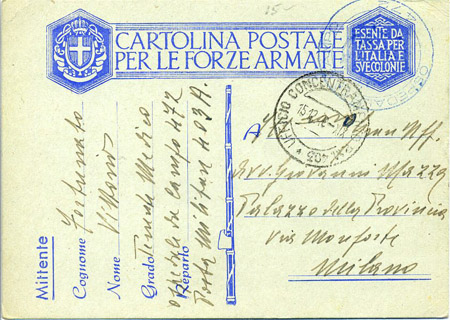 CARTOLINA POSTALE
PER LE FORZE ARMATE
ESENTE DA
TASSA PER
L'ITALIA E
SVE COLONIE
UFFICIO CONCENTRAMENTO
403
A
Uff.
Avv. Giovanni Mazza
Palazzo della Provincia
Via Monforte
Milano
Mittente
Cognome Fortunato
Nome Vittorio
Grado Tenente Medico
Reparto Ospedale da Campo 472
Posta Militare 403 A.